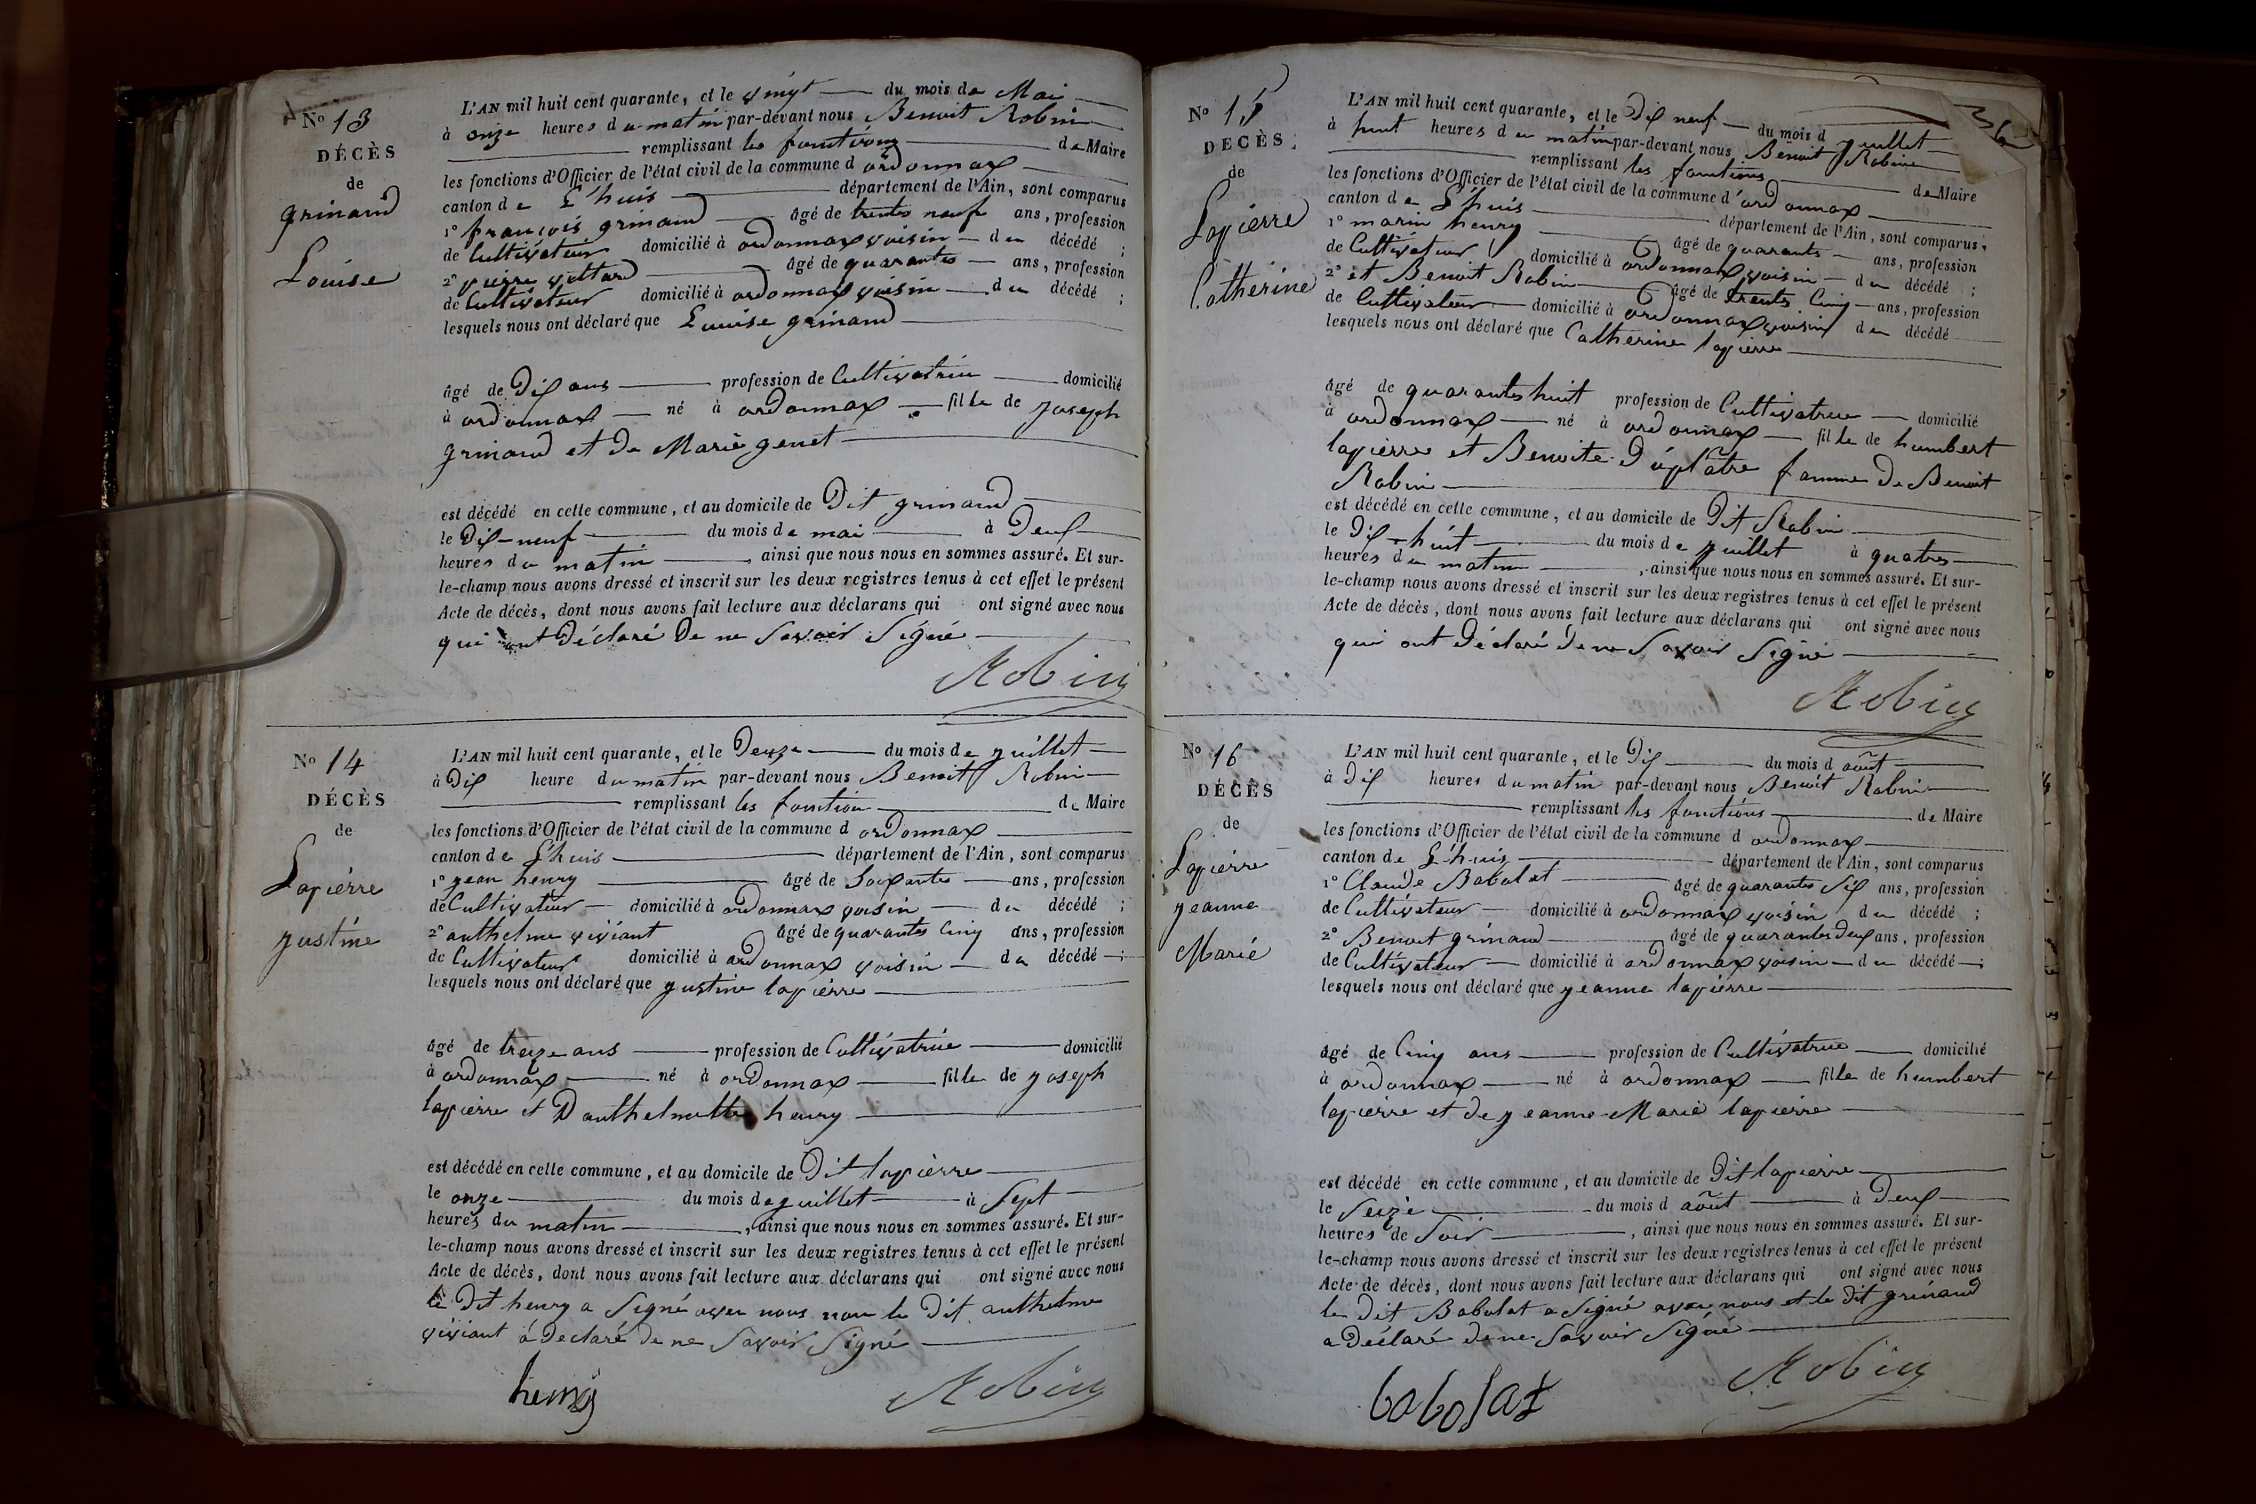 No 13
DÉCÈS
de
grinand
Louise
L'AN mil huit cent quarante, et le vingt du mois de Mai
à onze heures du matin par-devant nous Benoit Robin
remplissant les fonctions de Maire
les fonctions d'Officier de l'état civil de la commune d ordonnax
canton de L'huis département de l'Ain, sont comparus
1° françois grinand âgé de trentes neuf ans, profession
de Cultivateur domicilié à ordonnax voisin du décédé ;
2° pierre vuttard âgé de quarantes ans, profession
de Cultivateur domicilié à ordonnax voisin du décédé ;
lesquels nous ont déclaré que Louise grinand
âgé de Dix ans profession de Cultivatrice domicilié
à ordonnax né à ordonnax fille de joseph
grinand et De Marie genet
est décédé en cette commune, et au domicile de Dit grinand
le Dix-neuf du mois de mai à Deux
heures du matin, ainsi que nous nous en sommes assuré. Et sur-
le-champ nous avons dressé et inscrit sur les deux registres tenus à cet effet le présent
Acte de décès, dont nous avons fait lecture aux déclarans qui ont signé avec nous
qui ont Déclaré De ne Savoir Signé
Robin
No 14
DÉCÈS
de
Lapiérre
justine
L'AN mil huit cent quarante, et le Deuze du mois de juillet
à Dix heure du matin par-devant nous Benoit Robin
remplissant les fonction de Maire
les fonctions d'Officier de l'état civil de la commune d ordonnax
canton de L'huis département de l'Ain, sont comparus
1° jean henry âgé de Soixantes ans, profession
de Cultivateur domicilié à ordonnax voisin du décédé ;
2° anthelme viviant âgé de quarantes Cinq ans, profession
de Cultivateur domicilié à ordonnax voisin du décédé ;
lesquels nous ont déclaré que justine lapiérre
âgé de treize ans profession de Cultivatrice domicilié
à ordonnax né à ordonnax fille de joseph
lapiérre et D'anthelmette henry
est décédé en cette commune, et au domicile de Dit lapiérre
le onze du mois de juillet à Sept
heures du matin, ainsi que nous nous en sommes assuré. Et sur-
le-champ nous avons dressé et inscrit sur les deux registres tenus à cet effet le présent
Acte de décès, dont nous avons fait lecture aux déclarans qui ont signé avec nous
le Dit henry a Signé avec nous non le Dit anthelme
viviant a Declaré de ne Savoir Signé
henry
Robin
36
No 15
DÉCÈS
de
Lapierre
Catherine
L'AN mil huit cent quarante, et le Dix neuf du mois d juillet
à huit heures du matin par-devant nous Benoit Robin
remplissant les fonctions de Maire
les fonctions d'Officier de l'état civil de la commune d'ordonnax
canton de L'huis département de l'Ain, sont comparus
1° marin henry âgé de quarants ans, profession
de Cultivateur domicilié à ordonnax voisin du décédé ;
2° et Benoit Robin âgé de trentes Cinq ans, profession
de Cultivateur domicilié à ordonnax voisin du décédé
lesquels nous ont déclaré que Catherine lapierre
âgé de quarantes huit profession de Cultivatrice domicilié
à ordonnax né à ordonnax fille de humbert
lapierre et Benoite Duplâtre famme De Benoit
Robin
est décédé en cette commune, et au domicile de Dit Robin
le Dix-huit du mois de juillet à quatres
heures du matin, ainsi que nous nous en sommes assuré. Et sur-
le-champ nous avons dressé et inscrit sur les deux registres tenus à cet effet le présent
Acte de décès, dont nous avons fait lecture aux déclarans qui ont signé avec nous
qui ont Déclaré De ne Savoir Signé
Robin
No 16
DÉCÈS
de
Lapiérre
jeanne
Marié
L'AN mil huit cent quarante, et le Dix du mois d août
à Dix heures du matin par-devant nous Benoit Robin
remplissant les fonctions de Maire
les fonctions d'Officier de l'état civil de la commune d ordonnax
canton de L'huis département de l'Ain, sont comparus
1° Claude Babolat âgé de quarantes Six ans, profession
de Cultivateur domicilié à ordonnax voisin du décédé ;
2° Benoit grinand âgé de quarantes deux ans, profession
de Cultivateur domicilié à ordonnax voisin du décédé ;
lesquels nous ont déclaré que jeanne lapiérre
âgé de Cinq ans profession de Cultivatrice domicilié
à ordonnax né à ordonnax fille de humbert
lapierre et de jeanne-Marie lapierre
est décédé en cette commune, et au domicile de Dit lapierre
le Seize du mois d août à Deux
heures de Soir, ainsi que nous nous en sommes assuré. Et sur-
le-champ nous avons dressé et inscrit sur les deux registres tenus à cet effet le présent
Acte de décès, dont nous avons fait lecture aux déclarans qui ont signé avec nous
le Dit Babolat a Signé avec nous et le dit grinand
a Déclaré de ne Savoir Signé
babolat
Robin